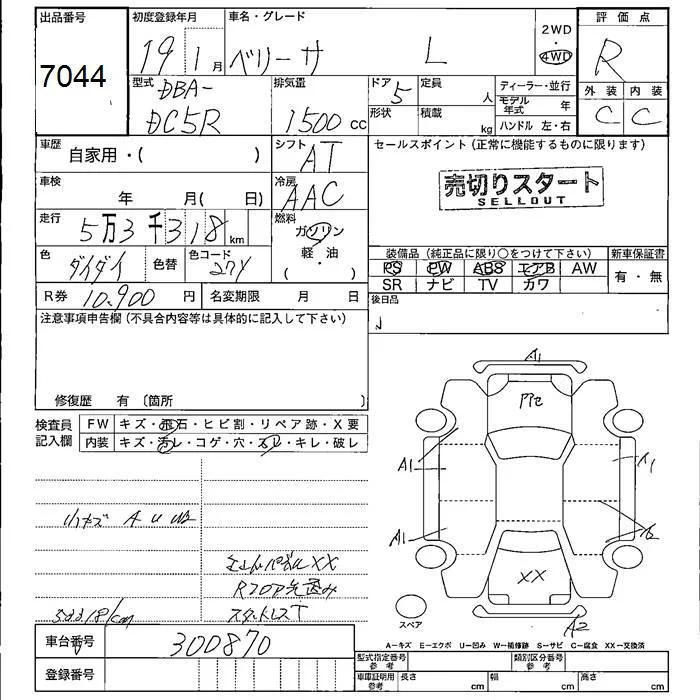 出品番号
7044
初度登録年月
19 1月
車名・グレード
ベリーサ L
2WD
4WD
評価点
R
外装 内装
C C
型式
DBA-
DC5R
排気量
1500 cc
ドア
5
定員
人
形状
積載
kg
ディーラー・並行
モデル年式 年
ハンドル 左・右
車歴
自家用・( )
シフト
AT
セールスポイント (正常に機能するものに限ります)
売切りスタート
SELLOUT
車検
年 月( 日)
冷房
AAC
走行
5万3千318km
燃料
ガソリン
軽・油
( )
色
ダイダイ
色替
色コード
27Y
装備品 (純正品に限り○をつけて下さい)
新車保証書
PS PW ABS エアB AW
SR ナビ TV カワ
有・無
R券 10.900 円
名変期限 月 日
後日品
注意事項申告欄 (不具合内容等は具体的に記入して下さい)
修復歴 有 〔箇所
検査員
記入欄
FW キズ・飛石・ヒビ割・リペア跡・X要
内装 キズ・汚レ・コゲ・穴・スレ・キレ・破レ
A1
A1
A1
A1
A2
XX
小キズ A U
XX
スタットレスT
スペア
A-キズ E-エクボ U-凹み W-補修跡 S-サビ C-腐食 XX-交換済
車台番号
300870
登録番号
型式指定番号
参考
類別区分番号
参考
車庫証明用
参考
長さ cm
幅 cm
高さ cm